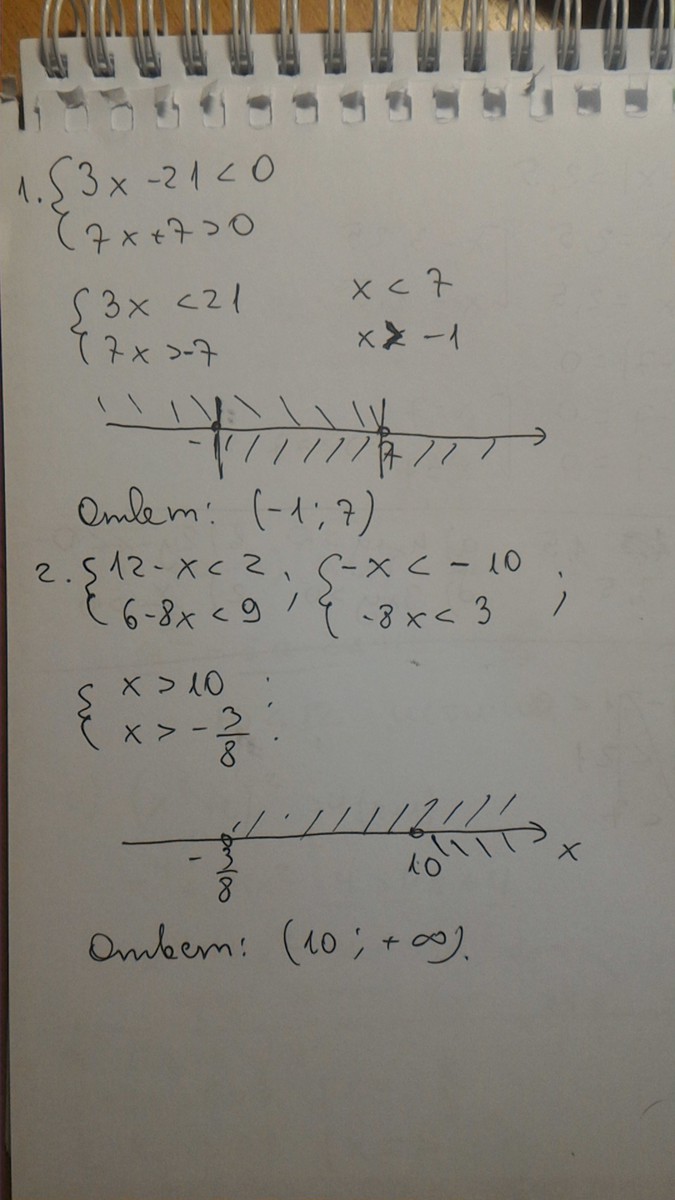 1. { 3x - 21 < 0
{ 7x + 7 > 0
{ 3x < 21 x < 7
{ 7x > -7 x > -1
- 7
Ответ: (-1; 7)
2. { 12 - x < 2 ; { -x < -10 ;
{ 6 - 8x < 9 { -8x < 3
{ x > 10 ;
{ x > - 3/8 .
- 3/8 10 x
Ответ: (10; +∞).